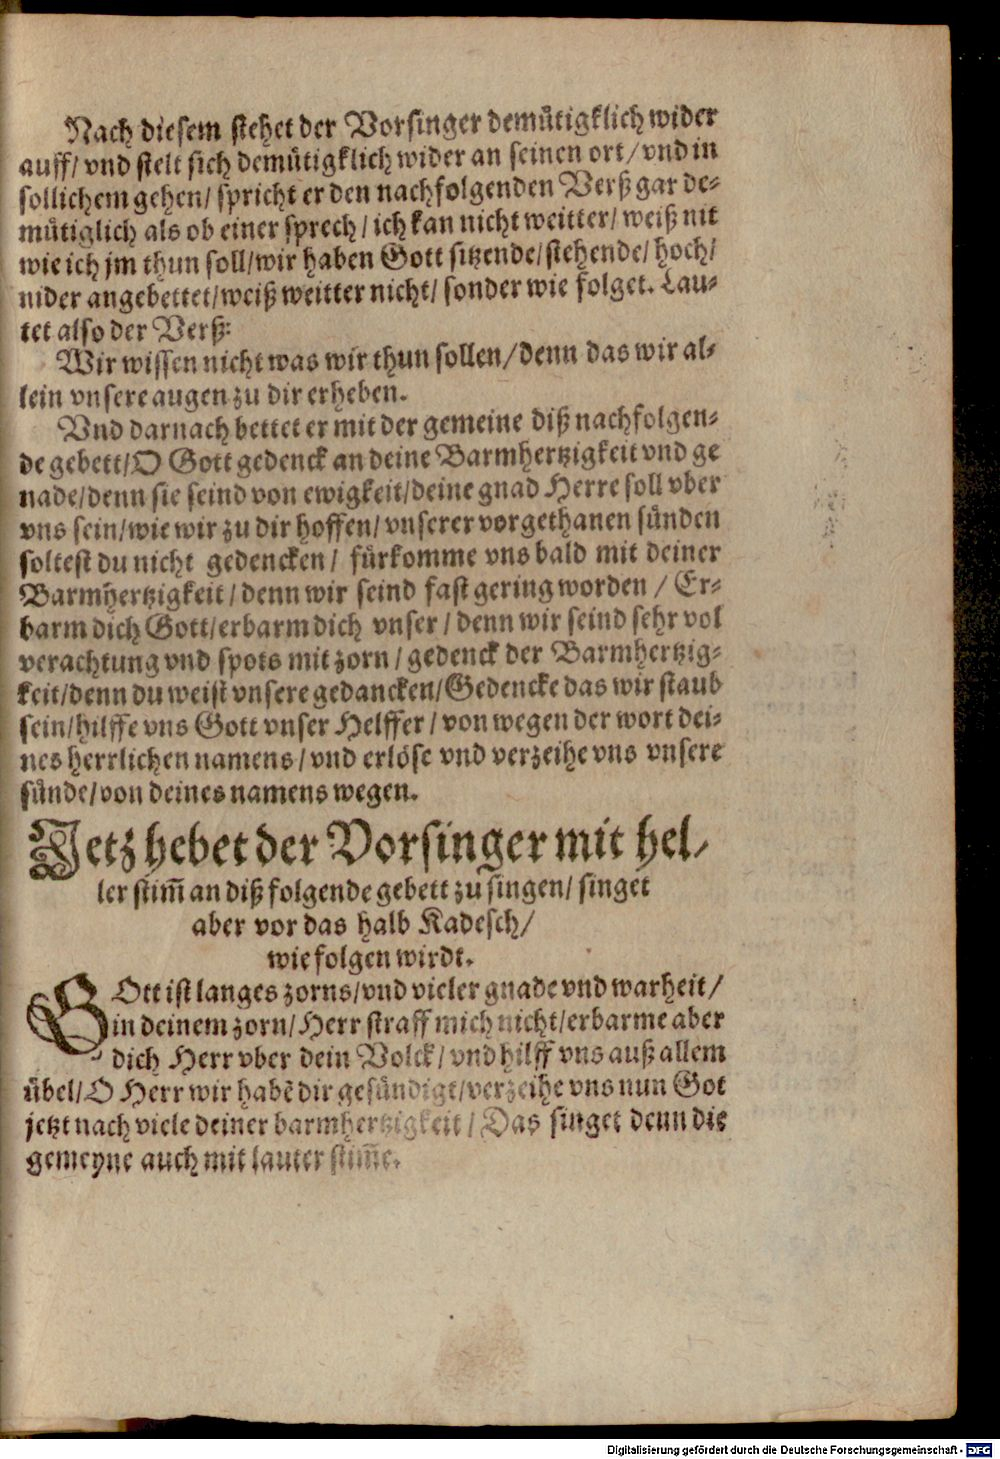 Nach diesem stehet der Vorsinger demütigklich wider
auff/ vnd stelt sich demütigklich wider an seinen ort/ vnd in
sollichem gehen/ spricht er den nachfolgenden Verß gar de-
mütiglich als ob einer sprech/ ich kan nicht weitter/ weiß nit
wie ich jm thun soll/wir haben Gott sitzende/stehende/ hoch/
nider angebettet/weiß weitter nicht/ sonder wie folget. Lau-
tet also der Verß:
Wir wissen nicht was wir thun sollen/denn das wir al-
lein vnsere augen zu dir erheben.
Vnd darnach bettet er mit der gemeine diß nachfolgen-
de gebett/O Gott gedenck an deine Barmhertzigkeit vnd ge
nade/denn sie seind von ewigkeit/deine gnad Herre soll vber
vns sein/wie wir zu dir hoffen/ vnserer vorgethanen sünden
soltest du nicht gedencken/ fürkomme vns bald mit deiner
Barmhertzigkeit/denn wir seind fast gering worden / Er-
barm dich Gott/erbarm dich vnser/denn wir seind sehr vol
verachtung vnd spots mit zorn/ gedenck der Barmhertzig-
keit/denn du weist vnsere gedancken/Gedencke das wir staub
sein/hilffe vns Gott vnser Helffer/ von wegen der wort dei-
nes herrlichen namens/ vnd erlöse vnd verzeihe vns vnsere
sünde/von deines namens wegen.
Jetz hebet der Vorsinger mit hel-
ler stim̃ an diß folgende gebett zu singen/ singet
aber vor das halb Kadesch/
wie folgen wirdt.
GOtt ist langes zorns/vnd vieler gnade vnd warheit/
in deinem zorn/Herr straff mich nicht/erbarme aber
dich Herr vber dein Volck/ vnd hilff vns auß allem
übel/O Herr wir habẽ dir gesündigt/verzeihe vns nun Got
jetzt nach viele deiner barmhertzigkeit/ Das singet denn die
gemeyne auch mit lauter stim̃e.
Digitalisierung gefördert durch die Deutsche Forschungsgemeinschaft - DFG